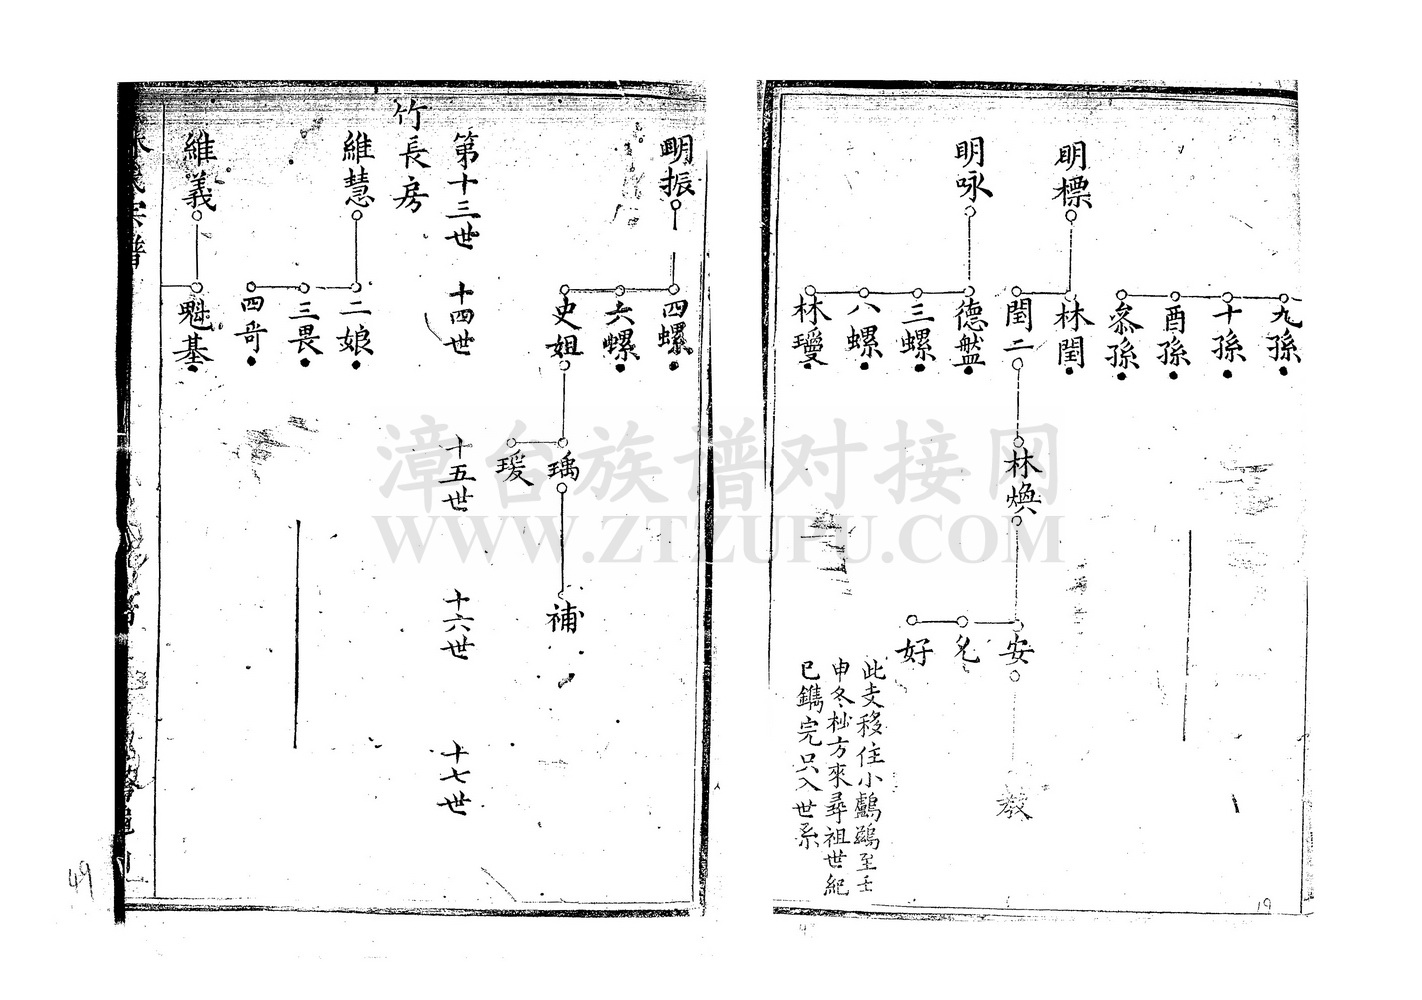 九孫
十孫
酉孫
叅孫
明標
林閏
閏二
林煥
安
允
好
教
明咏
德盤
三螺
八螺
林璦
此支移住小鸕鷀至壬
申冬杪方來尋祖世紀
已鐫完只入世系
19
明振
四螺
六螺
史姐
瑀
瑗
補
第十三世
十四世
十五世
十六世
十七世
竹長房
維慧
二娘
三畏
四奇
維義
魁基
49
漳台族譜对接网
WWW.ZTZUPU.COM